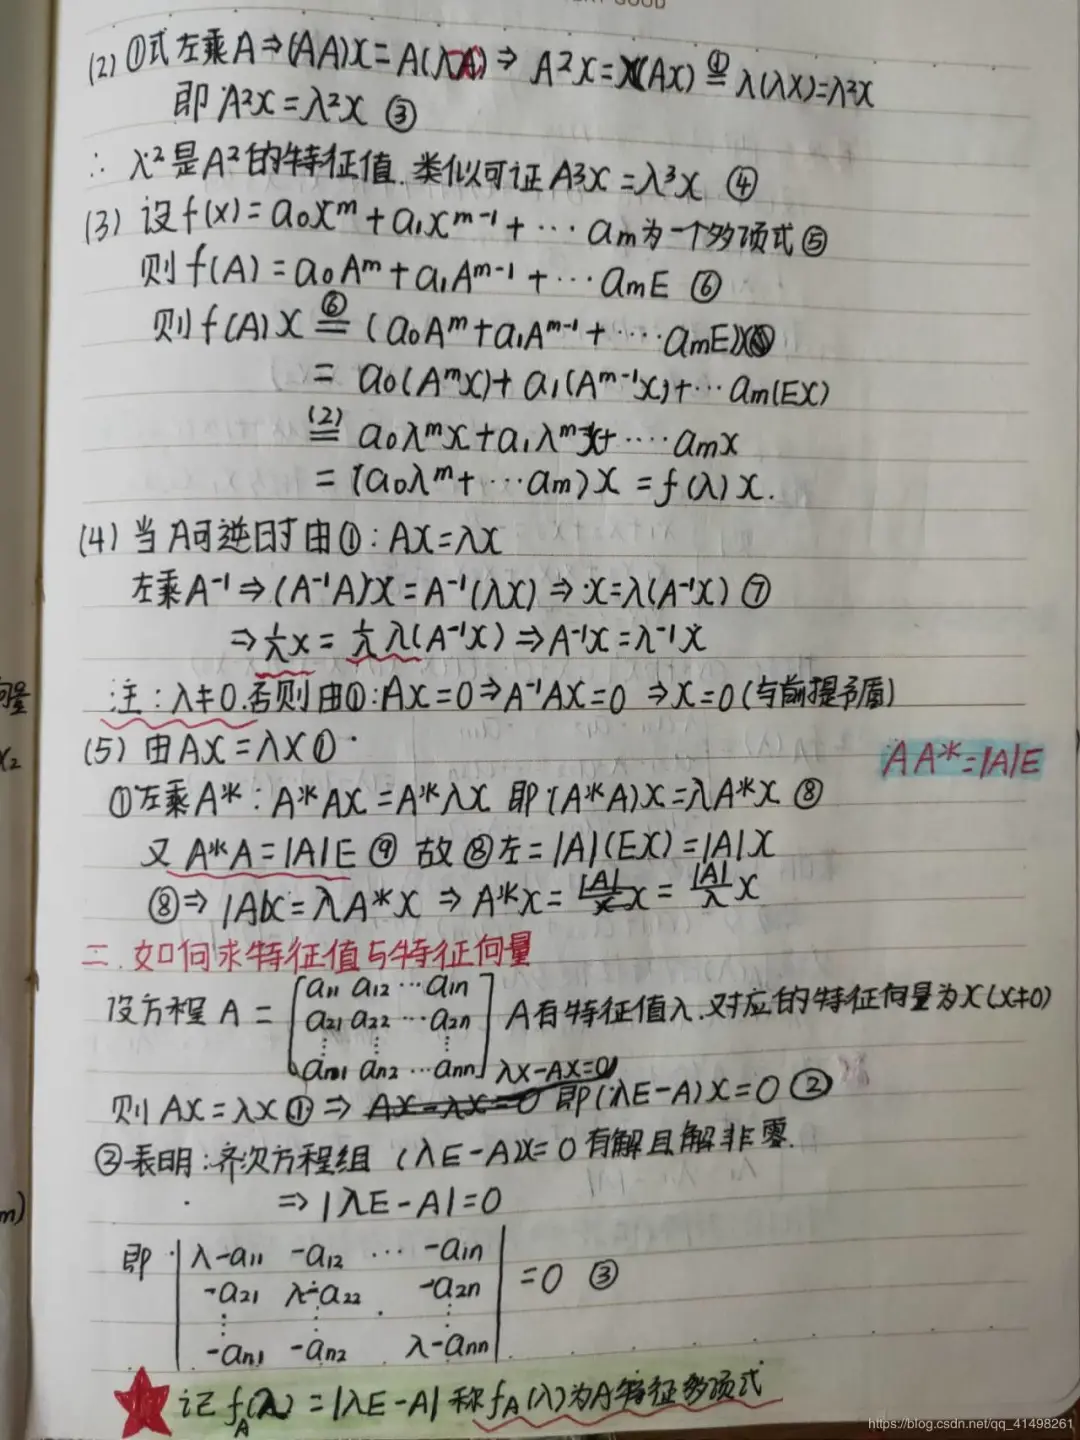 GOOD
(2) ①式左乘A⇒(AA)X=A(λX)⇒ A²X=λ(AX) ①= λ(λX)=λ²X
即 A²X=λ²X ③
∴ λ²是A²的特征值. 类似可证A³X=λ³X ④
(3) 设f(x)=a₀xᵐ+a₁xᵐ⁻¹+⋯aₘ为一个多项式⑤
则f(A)=a₀Aᵐ+a₁Aᵐ⁻¹+⋯aₘE ⑥
则f(A)X ⑥= (a₀Aᵐ+a₁Aᵐ⁻¹+⋯⋅aₘE)X
= a₀(AᵐX)+a₁(Aᵐ⁻¹X)+⋯aₘ(EX)
(2)= a₀λᵐX+a₁λᵐ⁻¹X+⋯⋅aₘX
=(a₀λᵐ+⋯aₘ)X=f(λ)X.
(4) 当A可逆时由①:AX=λX
左乘A⁻¹⇒(A⁻¹A)X=A⁻¹(λX)⇒X=λ(A⁻¹X)⑦
⇒1/λ X=1/λ λ(A⁻¹X)⇒A⁻¹X=λ⁻¹X
向量
注:λ≠0.否则由①:AX=0⇒A⁻¹AX=0 ⇒X=0(与前提矛盾)
(5) 由AX=λX①
x₂
AA*=|A|E
①左乘A*:A*AX=A*λX 即(A*A)X=λA*X ⑧
又A*A=|A|E ⑨ 故⑧左=|A|(EX)=|A|X
⑧⇒|A|X=λA*X ⇒A*X=|A|/λ X=|A|/λ X
二.如何求特征值与特征向量
设方程A=[a₁₁ a₁₂ ⋯a₁ₙ
a₂₁ a₂₂ ⋯a₂ₙ
⋮ ⋮ ⋮
aₙ₁ aₙ₂ ⋯aₙₙ] A有特征值λ.对应的特征向量为X(X≠0)
λX-AX=0
则AX=λX①⇒ AX-λX=0 即(λE-A)X=0②
②表明:齐次方程组(λE-A)X=0有解且解非零.
m)
⇒|λE-A|=0
即 |λ-a₁₁ -a₁₂ ⋯ -a₁ₙ
-a₂₁ λ-a₂₂ -a₂ₙ
⋮ ⋮ ⋮
-aₙ₁ -aₙ₂ λ-aₙₙ| =0 ③
记f_A(λ)=|λE-A|称f_A(λ)为A特征多项式
https://blog.csdn.net/qq_41498261